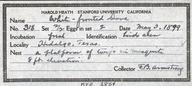 HAROLD HEATH STANFORD UNIVERSITY CALIFORNIA
Name White-fronted Dove
No. 318 Eggs in set 2 Date May 3, 1899
Incubation fresh Identification birds seen
Locality Hidalgo, Texas.
Nest a platform of twigs in mesquite
8 ft. elevation.
Collector F. B. Armstrong